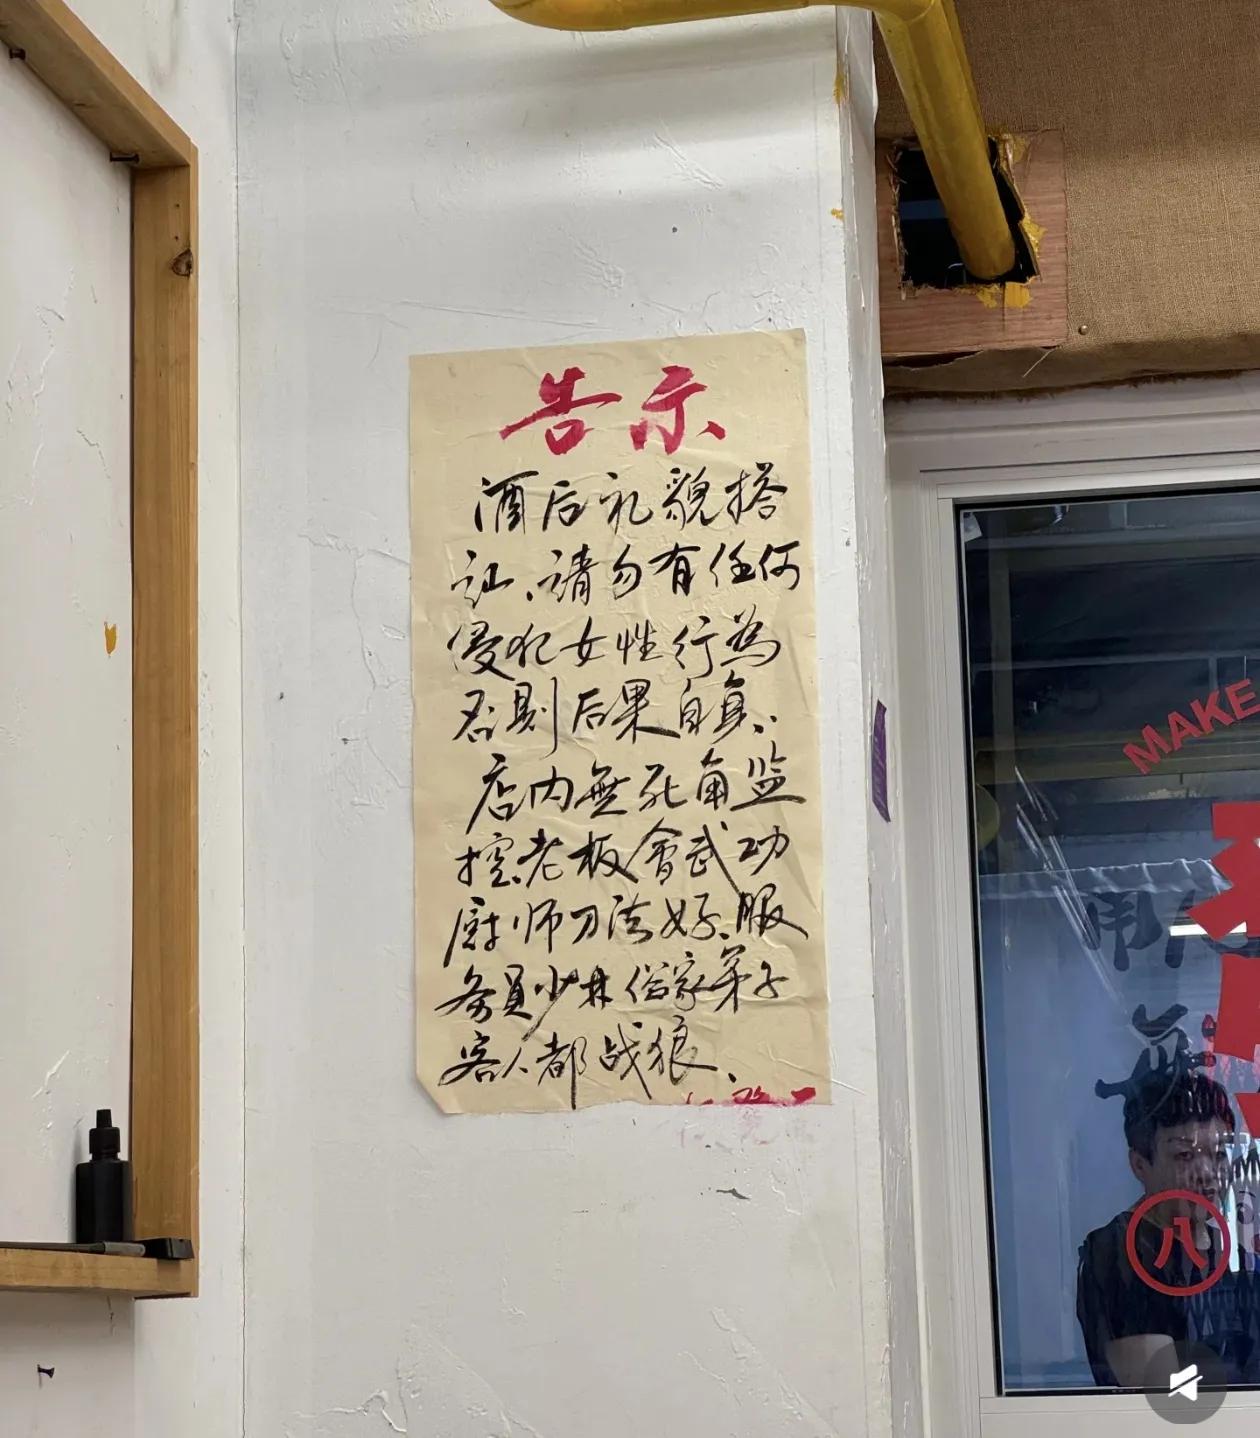 告示
酒后礼貌搭
讪、请勿有任何
侵犯女性行为
否则后果自负、
店内無死角监
控、老板會武功
厨师刀法好、服
务员少林俗家弟子
客人都战狼、
MAKE
八